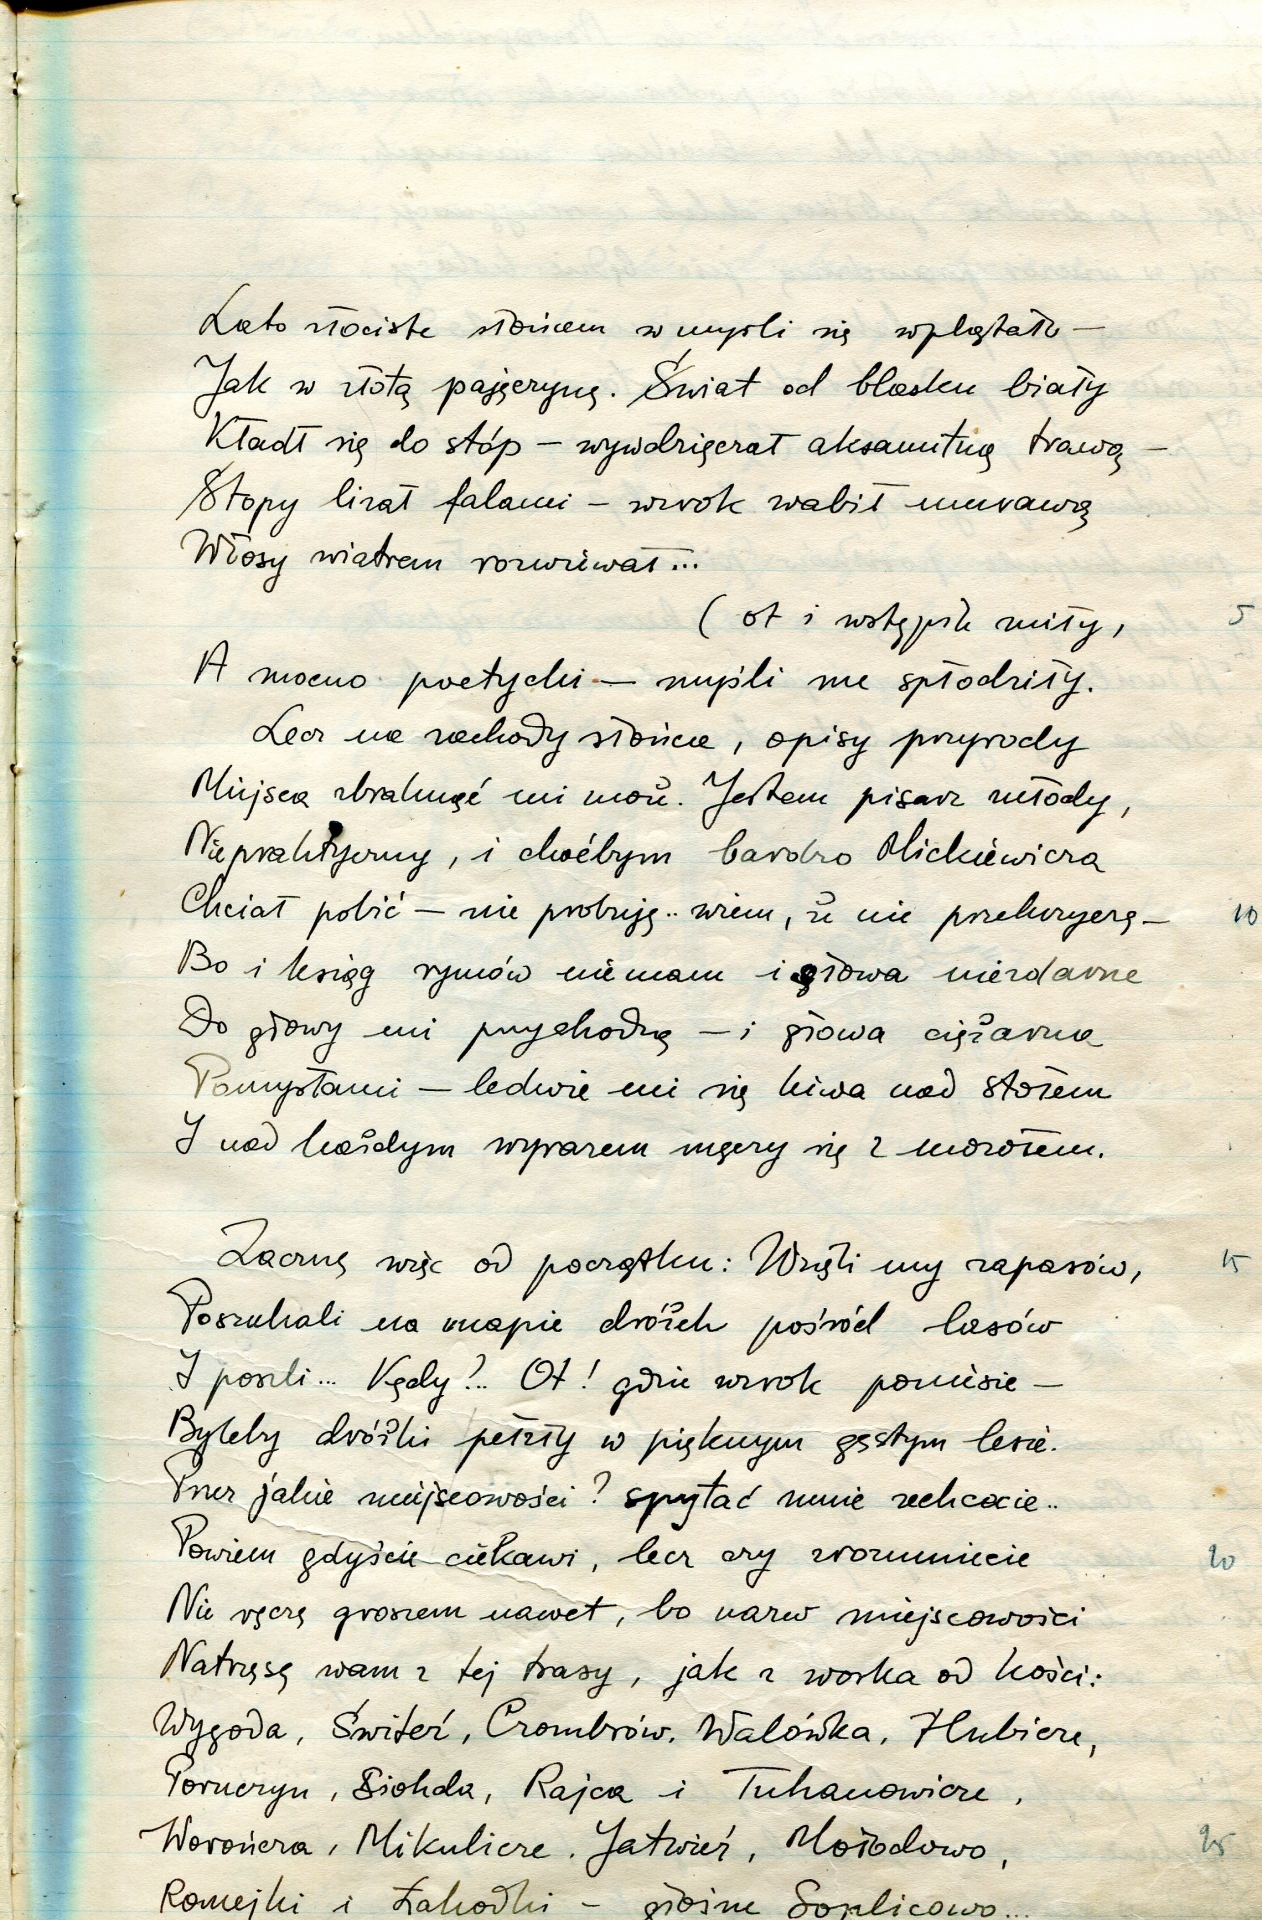 Lato złociste słońcem w myśli się wplątało —
Jak w złotą pajęczynę. Świat od blasku biały
Kładł się do stóp — wywdzięczał aksamitną trawą —
Stopy lizał falami — wzrok wabił murawą
Włosy wiatrem rozwiewał...
( ot i wstępik miły, 5
A mocno poetycki — myśli me spłodziły.
Lecz na zachody słońca, opisy przyrody
Miejsca zbraknąć mi może. Jestem pisarz młody,
Niepraktyczny, i choćbym bardzo Mickiewicza
Chciał pobić — nie próbuję.. wiem, że nie przekrzyczę — 10
Bo i ksiąg rymów nie mam i słowa niezdarne
Do głowy mi przychodzą — i głowa ciężarna
Pomysłami — ledwie mi się kiwa nad stołem
I nad każdym wyrazem męczy się z mozołem.
Zacznę więc od początku: Wzięli my zapasów, 15
Poszukali na mapie dróżek pośród lasów
I poszli... Kędy?.. Ot! gdzie wzrok poniesie —
Byleby dróżki pełzły w pięknym gęstym lesie.
Przez jakie miejscowości? spytać mnie zechcecie..
Powiem gdyście ciekawi, lecz czy zrozumiecie 20
Nie ręczę groszem nawet, bo nazw miejscowości
Natrzęsę wam z tej trasy, jak z worka od kości:
Wygoda, Świteź, Czombrów, Walówka, Hłubicze,
Poruczyn, Siohda, Rajca i Tuhanowicze,
Worończa, Mikulicze, Jatwieź, Mołodowo, 25
Romejki i Zahodki — głośne Soplicowo...